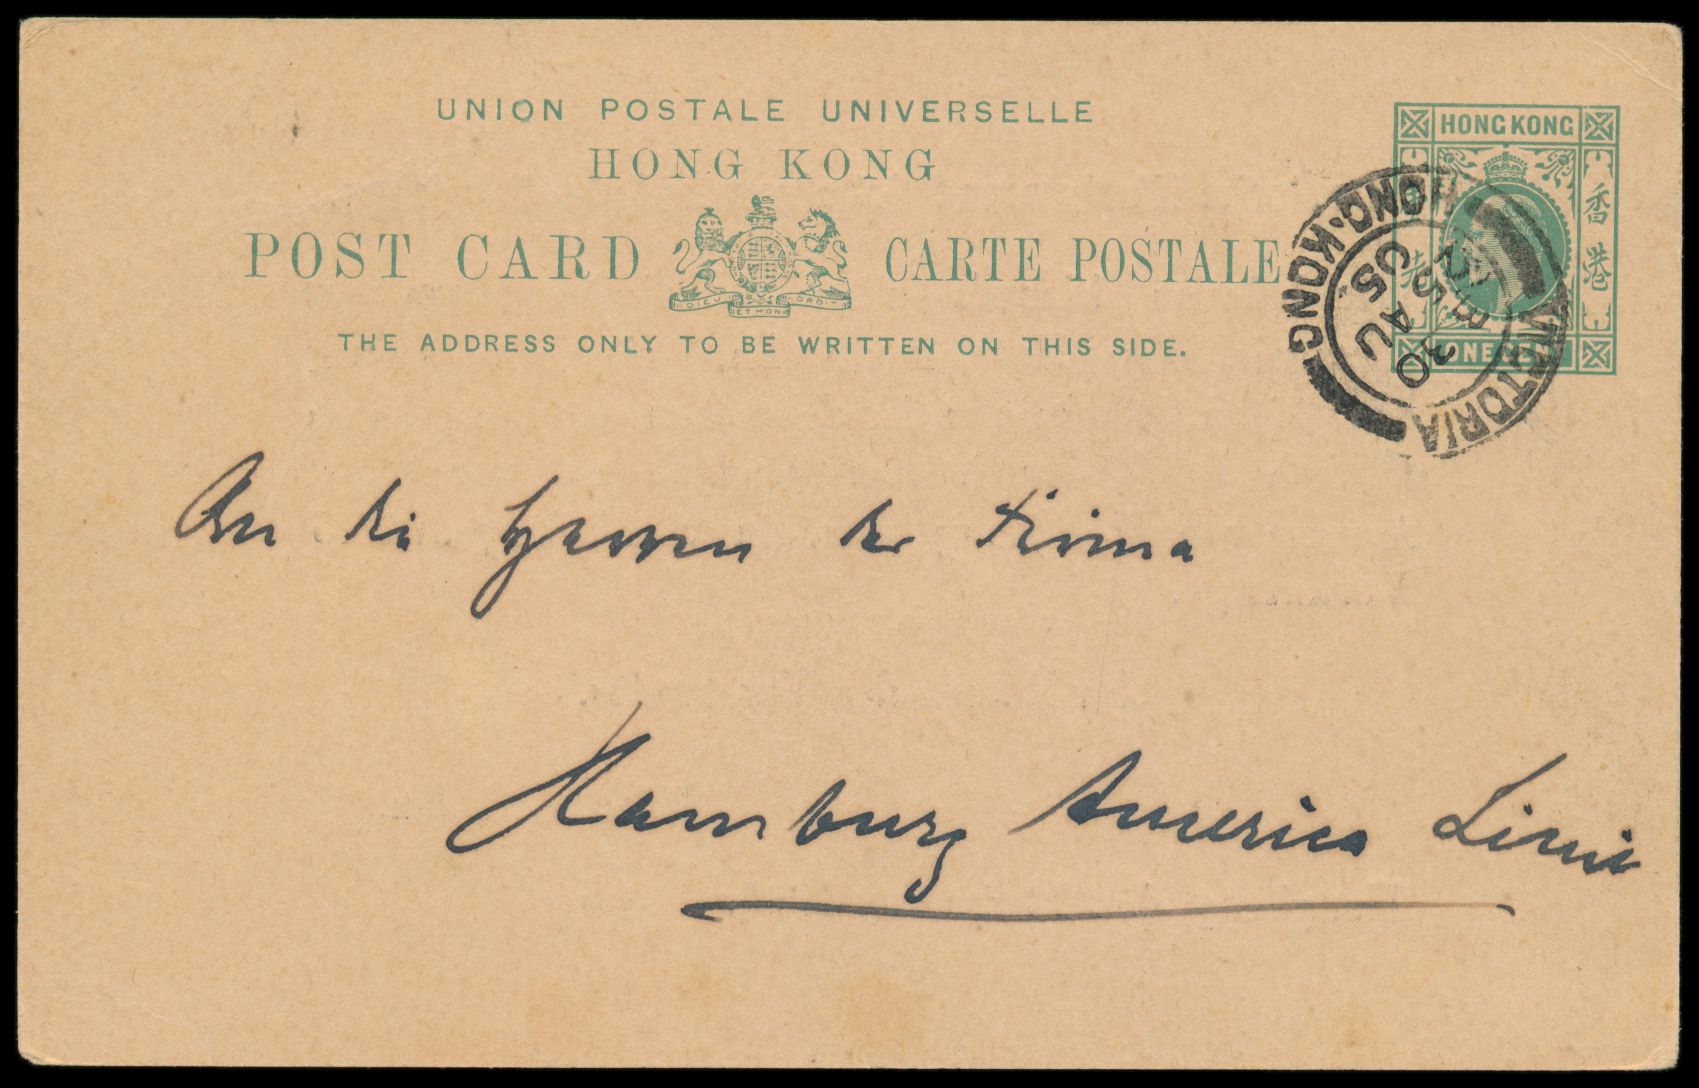 UNION POSTALE UNIVERSELLE
HONG KONG
POST CARD CARTE POSTALE
DIEU ET MON DROIT
THE ADDRESS ONLY TO BE WRITTEN ON THIS SIDE.
HONG KONG
香港
ONE CENT
VICTORIA HONG.KONG
30
AU
An die Herren der Firma
Hamburg America Linie